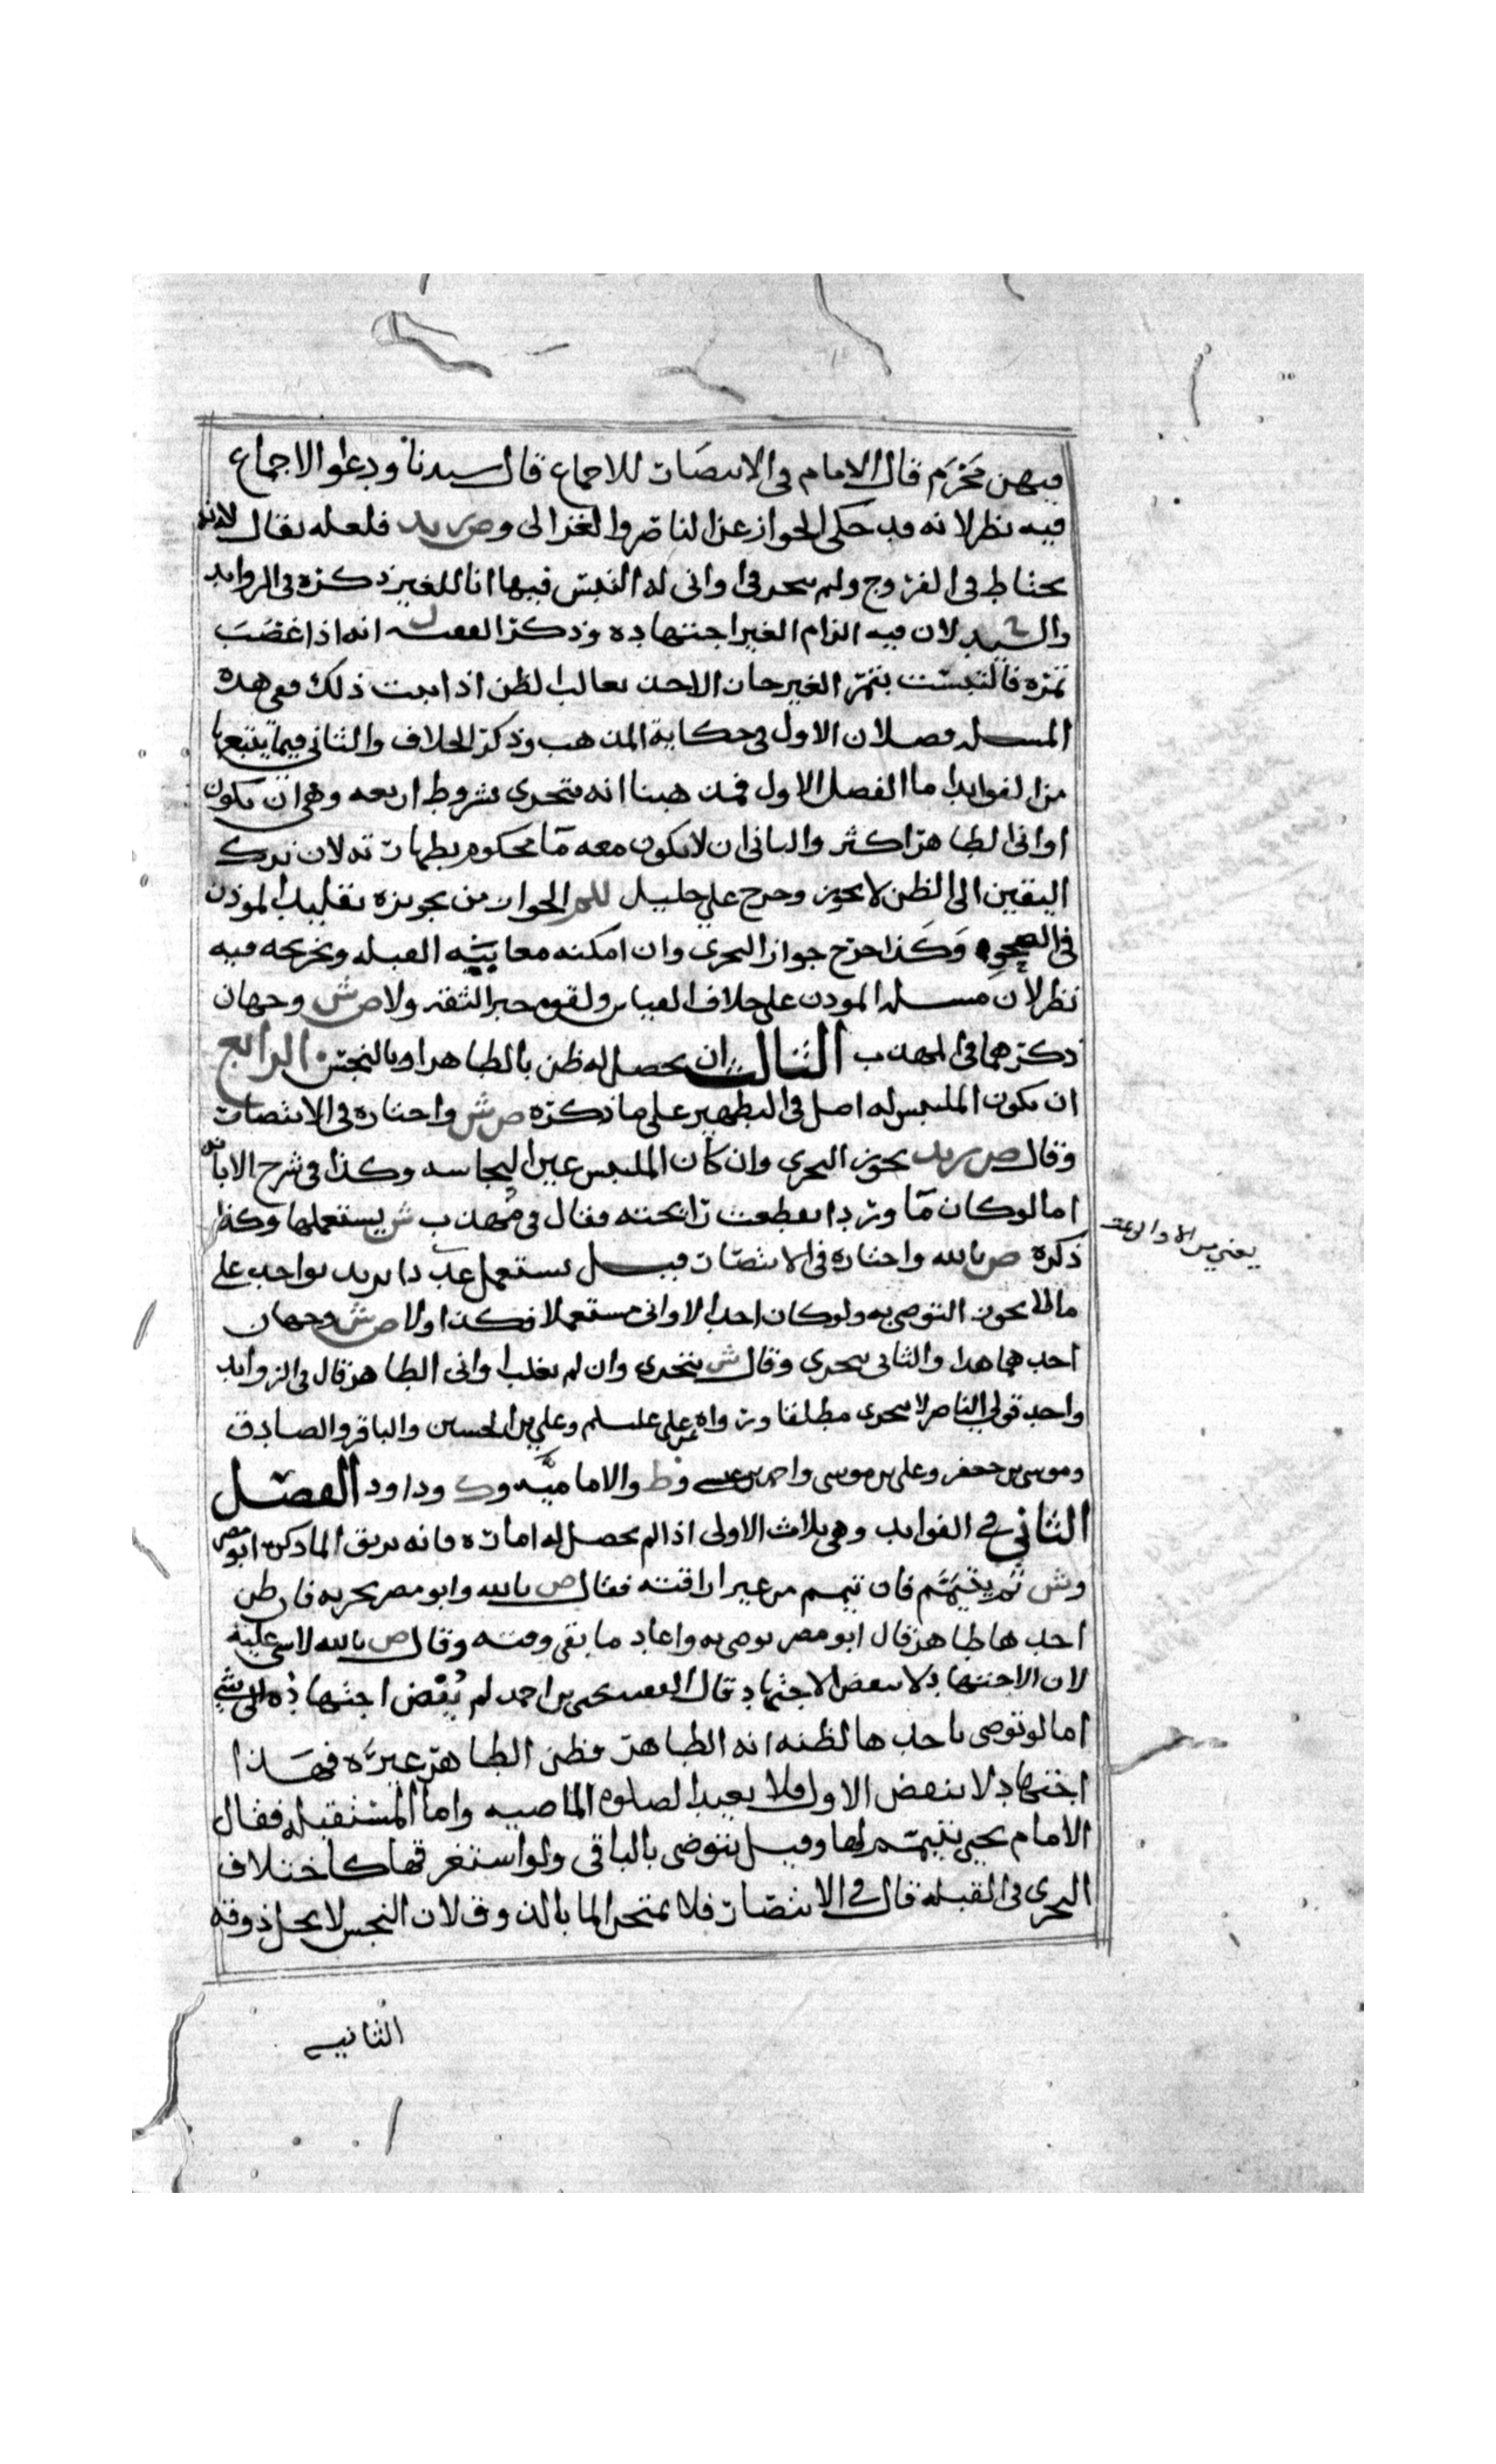 فيهن محرم قال الامام في الانتصار للاجماع قال سيدنا ودعوا الاجماع
فيه نظر لانه قد حكي الجواز عن الناصر والغزالي وص ريد فلعله يقال لانه
يحتاط في الفروج ولم يتحر في اواني له التبس فيها انا للغير ذكره في الزوايد
والسيد لان فيه الزام الغير اجتهاده وذكر الفقيه ل انه اذا غصب
تمره فالتبست بتمر الغير جاز الاخذ بغالب الظن اذا ثبت ذلك ففي هذه
المسله فصلان الاول في حكاية المذهب وذكر الخلاف والثاني فيما يتبعها
من الفوايد اما الفصل الاول فمذهبنا انه يتحرى بشروط اربعه وهي ان يكون
اواني الطاهر اكثر والثاني ان لا يكون معه ما محكوم بطهارته لان ترك
اليقين الى الظن لا يجوز وخرج علي خليل للم الجواز من تجويزه تقليد الموذن
في الصحو وكذا خرج جواز التحري وان امكنه معاينة القبله وتخريجه فيه
نظر لان مسله الموذن على خلاف القياس ولقوه خبر الثقه ولاص ش وجهان
ذكرهما في المهذب الثالث ان يحصل له ظن بالطاهر او بالنجس الرابع
ان يكون الملتبس له اصل في التطهير على ما ذكره ص ش واختاره في الانتصار
وقال ص ريد يجوز التحري وان كان الملتبس عين النجاسه وكذا في شرح الابانه
اما لو كان ما ورد انقطعت رائحته فقال في مهذب ش يستعملها وكذا
ذكره ص بالله واختاره في الانتصار قيل يستعمل عددا يزيد بواحد على
مالا يجوز التوضي به ولو كان احد الاواني مستعملا فكذا ولاص ش وجهان
احدهما هذا والثاني يتحرى وقال ش يتحرى وان لم يغلب اواني الطاهر قال في الزوايد
واحد قولي الناصر لا يتحرى مطلقا ورواه عن علي علسلم وعلي بن الحسين والباقر والصادق
وموسى بن جعفر وعلي بن موسى واحمد بن عيسى وط والاماميه وك وداود الفصل
الثاني في الفوايد وهي ثلاث الاولى اذا لم يحصل له اماره فانه يريق الما ذكره ابو مضر
وش ثم يتيمم فان تيمم من غير اراقته فقال ص بالله وابو مضر يجزيه فان ظن
احدها طاهر قال ابو مضر توضى به واعاد ما بقي وقته وقال ص بالله لا شي عليه
لان الاجتهاد لا ينقض الاجتهاد قال الفقيه يحيى بن احمد لم يفض اجتهاده الى شي
اما لو توضى باحدها لظنه انه الطاهر فظن الطاهر غيره فهذا
اجتهاد لا ينقض الاول فلا يعيد الصلوه الماضيه واما المستقبله فقال
الامام يحيى يتيمم لها وقيل يتوضى بالباقي ولو استغرقها كاختلاف
التحري في القبله قال في الانتصار فلا يمتحن الما بالذوق لان النجس لا يحل ذوقه
يعني من الاواني
الثانيه